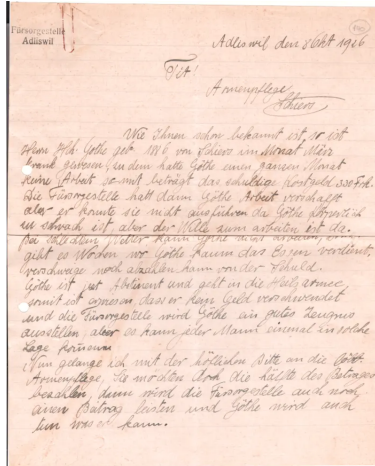 Fürsorgestelle
Adliswil
Adliswil den 8 Okt 1926
Tit!
Armenpflege
Schiers
Wie Ihnen schon bekannt ist, so ist
Herr Hch. Göthe geb 1886 von Schiers im Monat März
krank gewesen, zu dem hatte Göthe einen ganzen Monat
keine Arbeit so mit beträgt das schuldige Kostgeld
Die Fürsorgestelle hatt dann Göthe Arbeit verschafft
aber er konnte sie nicht ausführen da Göthe
zu schwach ist, aber der Wille zum arbeiten ist da.
Bei Wetter kann Göthe nicht arbeiten,
gibt es Wochen wo Göthe kaum das Essen verdient,
verschwige noch abzahlen kann von der Schuld.
Göthe ist jetz Abstinent und geht in die Heilsarmee,
somit ist erwiesen, dass er kein Geld verschwendet
und die Fürsorgestelle wird Göthe ein gutes Zeugnes
ausstellen, aber es kann jeder Mann einmal an solche
Lage kommen
Nun gelange ich mit der höflichen Bitte an die
Armenpflege, Sie möchten doch die hälfte des Betrages
bezahlen, dann wird die Fürsorgestelle auch noch
einen Betrag leisten und Göthe wird auch
tun was er kann.